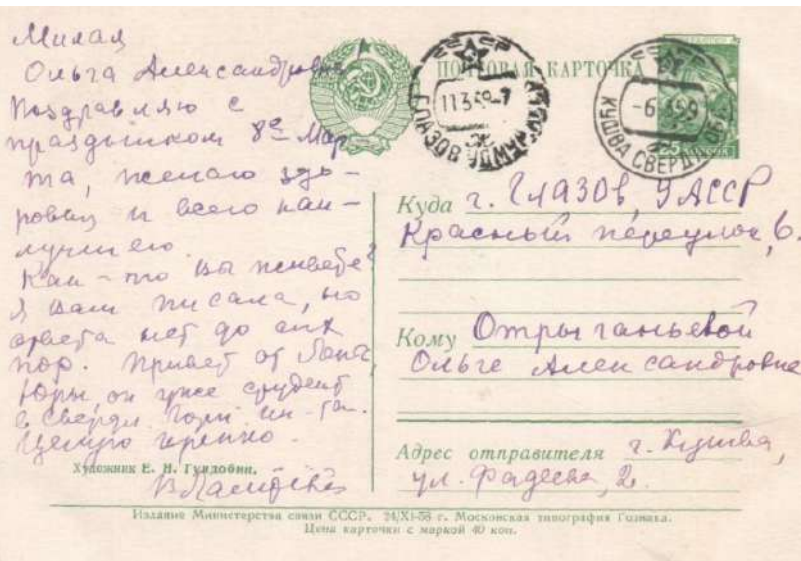 Милая
Ольга Александровна
Поздравляю с
праздником 8го Мар
та, желаю здо-
ровья и всего наи-
лучшего.
Как-то вы живете?
Я вам писала, но
ответа нет до сих
пор. Привет от
Юры, он уже студент
в Свердл. Горн. ин-та.
Целую крепко.
Художник Е. Н. Гундобин.
ПОЧТОВАЯ КАРТОЧКА
ГЛАЗОВ УДМУРТ
11 3 59-7
КУШВА СВЕРДЛ. ОБЛ.
-6 3 59
25
Куда г. Глазов, УАССР
Красный переулок, 6.
Кому Отрыганьевой
Ольге Александровне
Адрес отправителя г. Кушва,
ул. Фадеева, 2.
Издание Министерства связи СССР. 24/XI-58 г. Московская типография Гознака.
Цена карточки с маркой 40 коп.